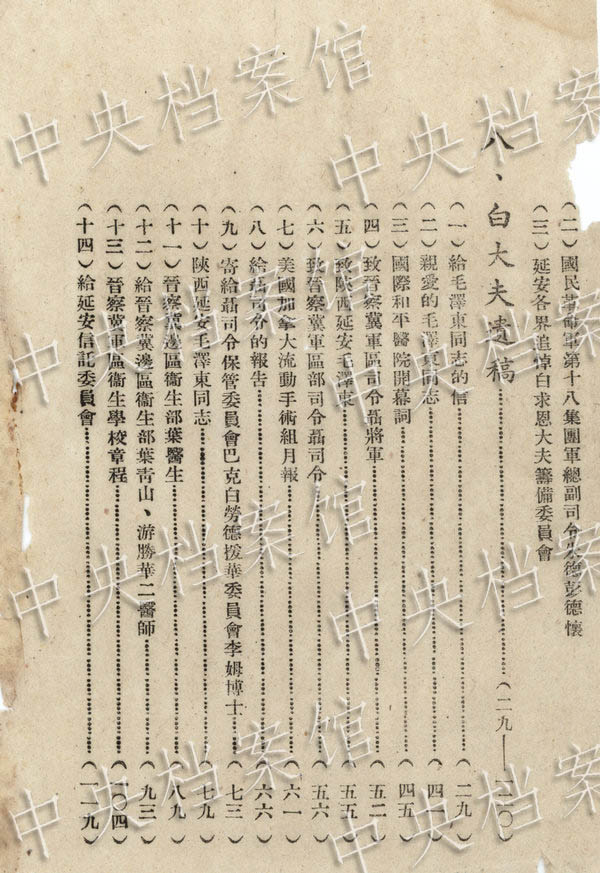 (二)國民革命軍第十八集團軍總副司令朱德彭德懷
(三)延安各界追悼白求恩大夫籌備委員會
八、白大夫遺稿……(二九——一二〇)
(一)給毛澤東同志的信……(二九)
(二)親愛的毛澤東同志……(四一)
(三)國際和平醫院開幕詞……(四五)
(四)致晉察冀軍區司令聶將軍……(五二)
(五)致陝西延安毛澤東……(五五)
(六)致晉察冀軍區部司令聶司令……(五六)
(七)美國加拿大流動手術組月報……(六一)
(八)給聶司令的報告……(六六)
(九)寄給聶司令保管委員會巴克白勞德援華委員會李姆博士……(七三)
(十)陝西延安毛澤東同志……(七九)
(十一)晉察冀邊區衞生部葉醫生……(八九)
(十二)給晉察冀邊區衞生部葉青山、游勝華二醫師……(九三)
(十三)晉察冀軍區衞生學校章程……(一〇四)
(十四)給延安信託委員會……(一一九)
中央档案馆
中央档案馆
中央档案馆
中央档案馆
中央档案馆
中央档案馆